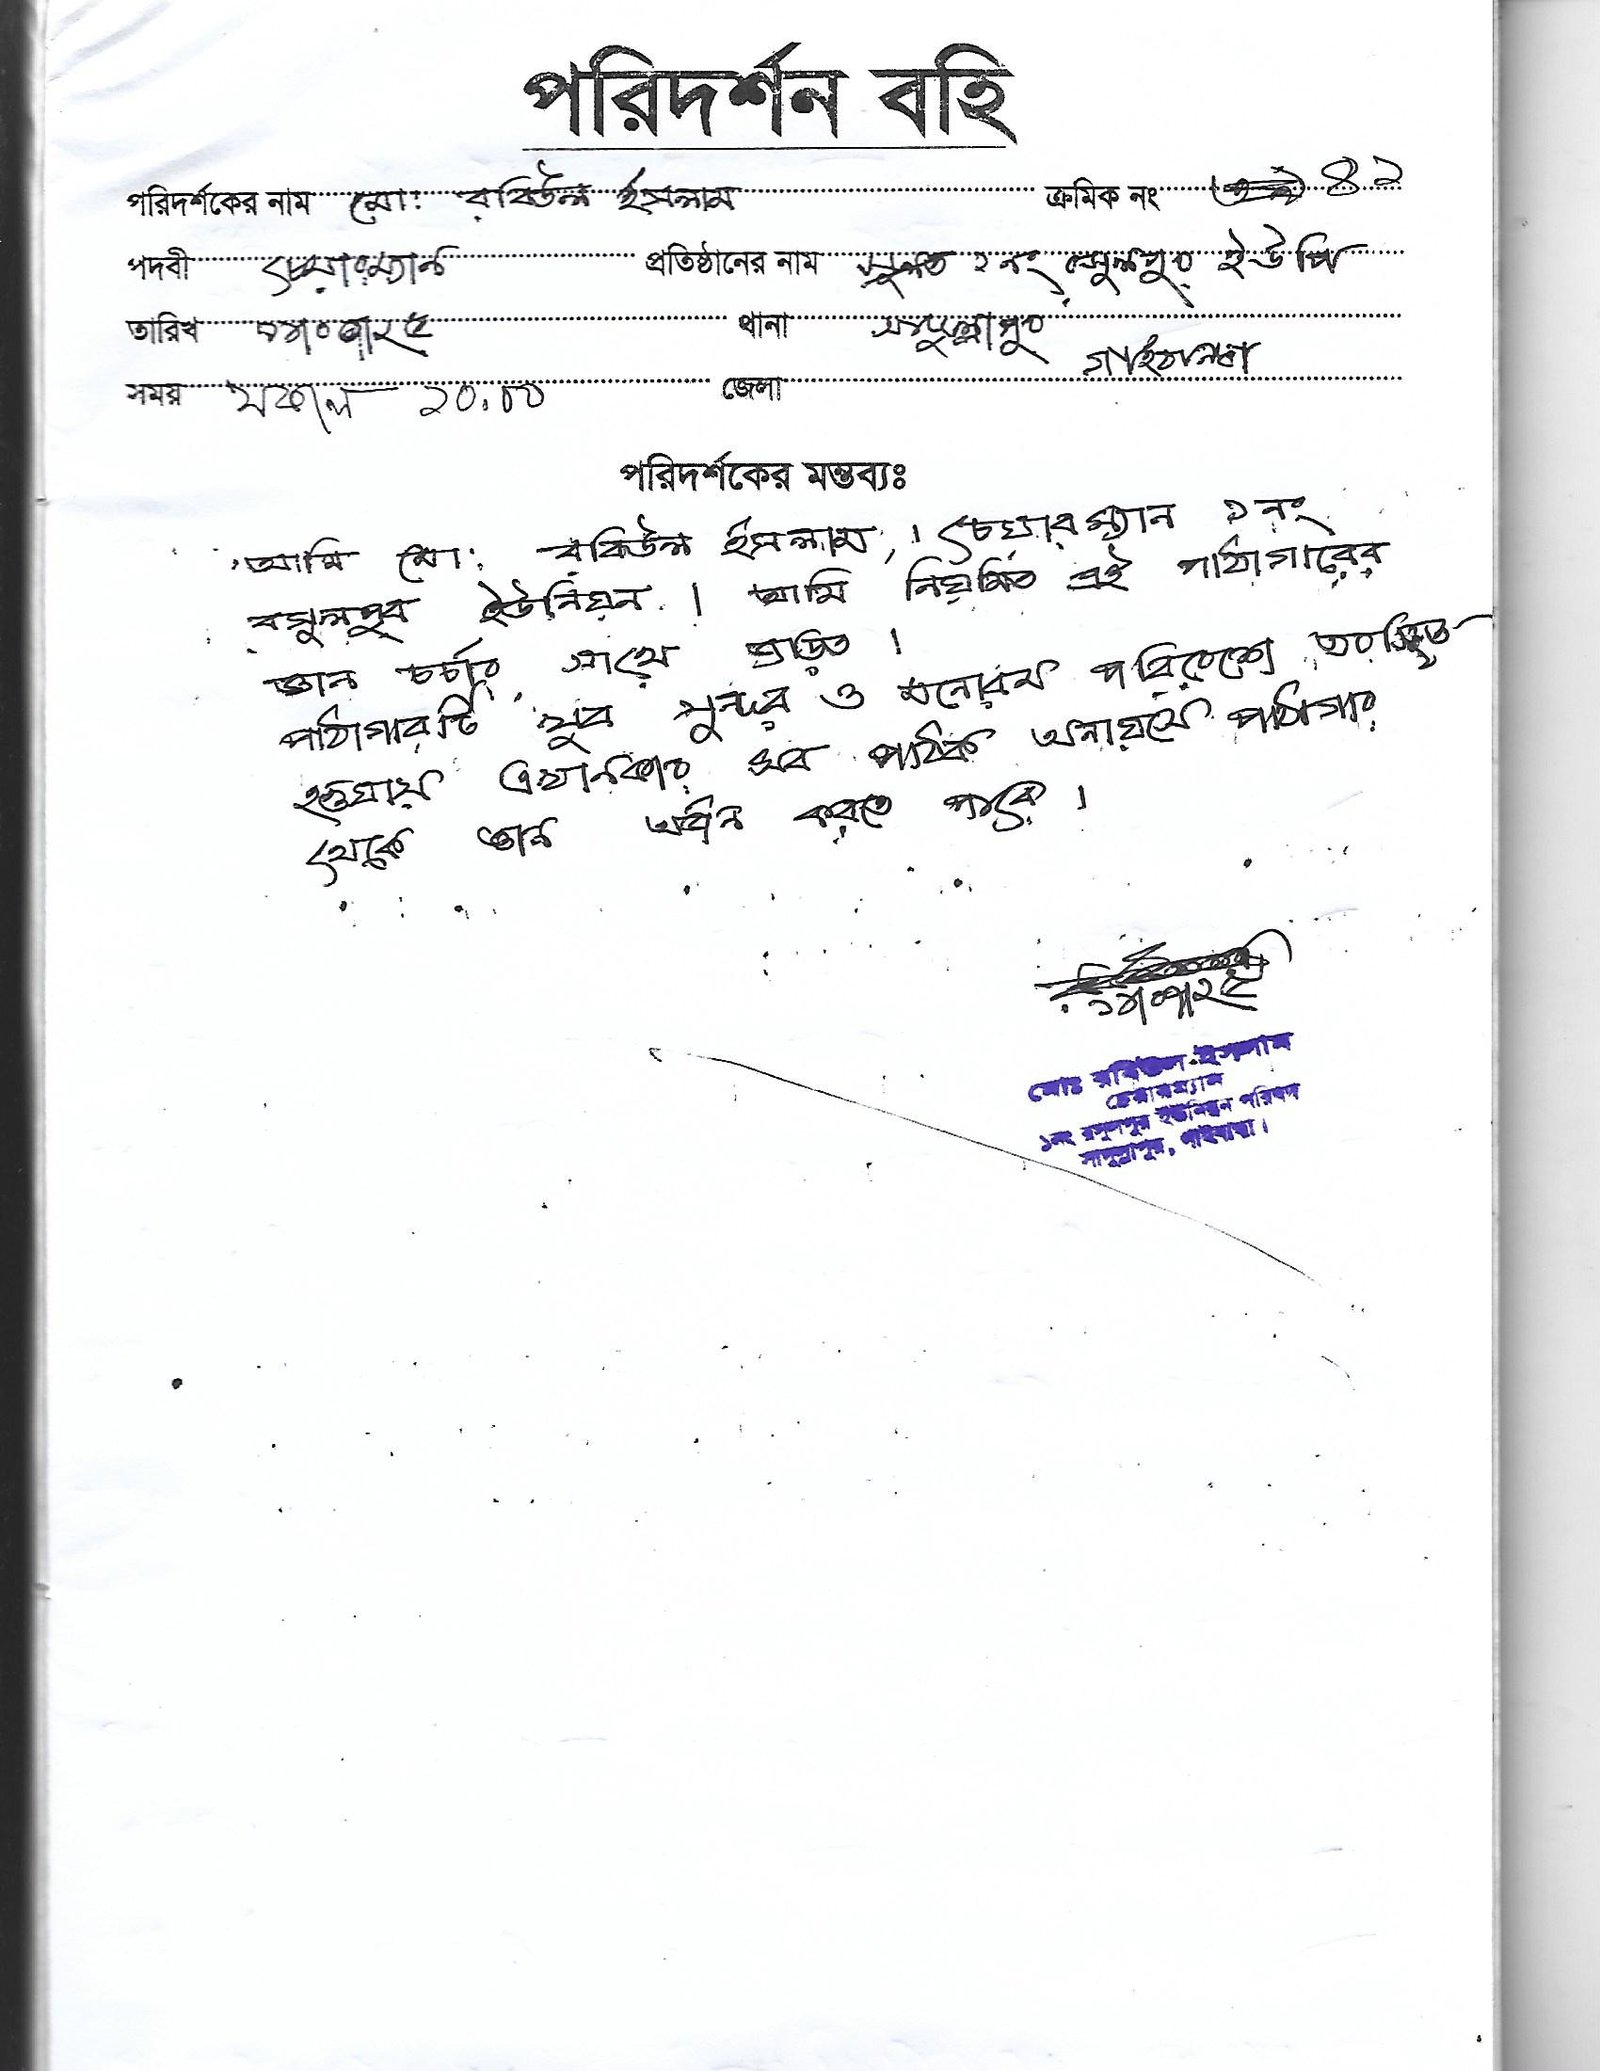 পরিদর্শন বহি
পরিদর্শকের নাম মো: রবিউল ইসলাম ক্রমিক নং ৪২
পদবী চেয়ারম্যান প্রতিষ্ঠানের নাম ১নং রসুলপুর ইউপি
তারিখ থানা সাদুল্লাপুর
সময় সকাল ১০.০০ জেলা গাইবান্ধা
পরিদর্শকের মন্তব্যঃ
আমি মো: রবিউল ইসলাম, চেয়ারম্যান ১নং
রসুলপুর ইউনিয়ন। আমি নিয়মিত এই পাঠাগারের
জ্ঞান চর্চার সাথে জড়িত।
পাঠাগারটি খুব সুন্দর ও মনোরম পরিবেশে
হওয়ায় এখানকার সব পাঠক অনায়াসে পাঠাগার
থেকে জ্ঞান অর্জন করতে পারে।
মোঃ রবিউল ইসলাম
চেয়ারম্যান
১নং রসুলপুর ইউনিয়ন পরিষদ
সাদুল্লাপুর, গাইবান্ধা।